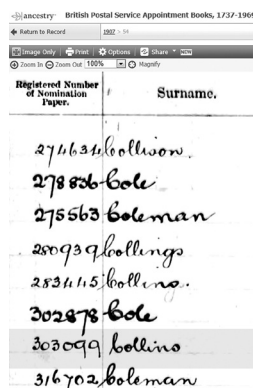 ancestry British Postal Service Appointment Books, 1737-1969
Return to Record 1907 > 54
Image Only Print Options Share NEW
Zoom In Zoom Out 100% Magnify
Registered Number of Nomination Paper. Surname.
274634 Collison.
278836 Cole
275563 Coleman
280939 Collings
283445 Collins.
302878 Cole
303099 Collins
316702 Coleman